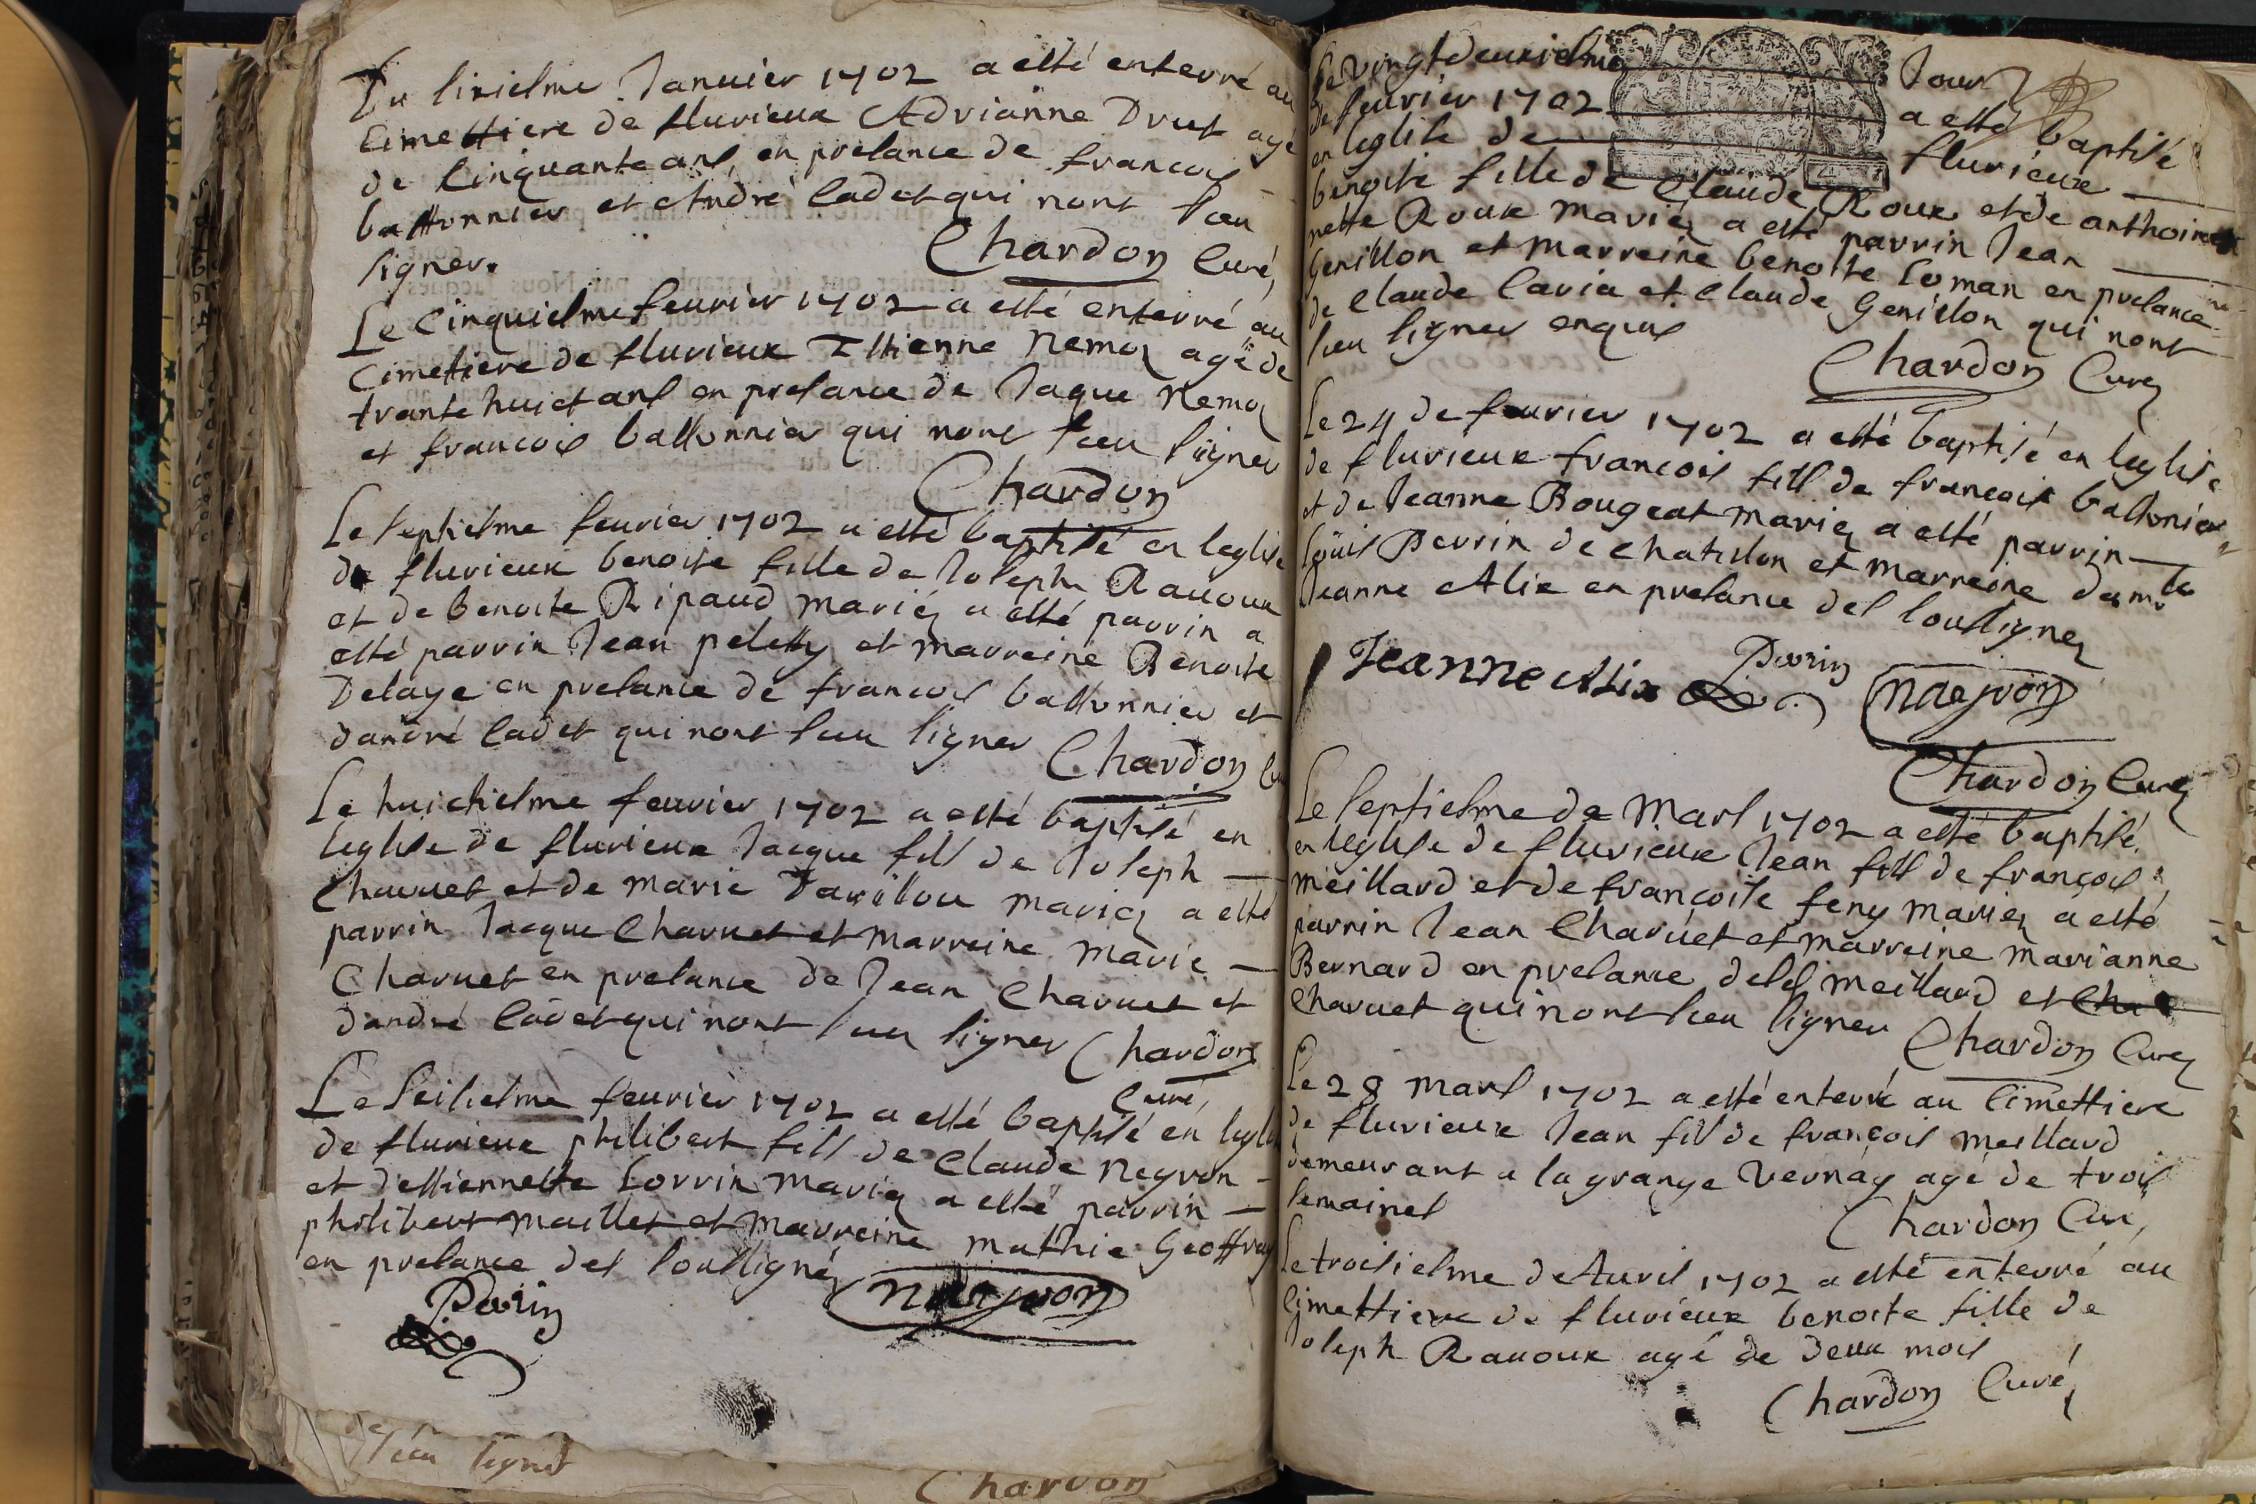 Du sixiesme Januier 1702 a esté enterré au
Cimettiere de fluvieux Adrianne Drut agé
de Cinquante ans, en presance de francois
battonnier et André Cadet qui nont sceu
signer. Chardon Curé,
Le Cinquiesme feurier 1702 a esté enterré au
Cimetiere de fluvieux Estienne Nemoz agé de
trante huict ans en presance de Jaque Nemoz
et francois battonnier qui nont sceu signer
Chardon
Le septiesme feurier 1702 a esté baptisé en leglise
de fluvieux benoite fille de Joseph Rauoux
et de benoite Ripaud mariéz a esté parrin a
esté parrin Jean pelletty et marreine Benoite
Delaye en presance de francois battonnier et
dandré Cadet qui nont sceu signer Chardon
Le huictiesme feurier 1702 a esté baptisé en
leglise de fluvieux Jacque fils de Joseph
Charuet et de marie mariez a esté
parrin Jacque Charuet et marreine marie
Charuet en presance de Jean Charuet et
dandré Cadet qui nont sceu signer Chardon
Curé,
Le seisiesme feurier 1702 a esté baptisé en leglise
de fluvieux philibert fils de Claude Negron
et destiennette Lorrin mariez a esté parrin
philibert maillet et marreine mathie Geoffray
en presance des soussignéz
Perrin nueyron
sceu signer
Chardon
Le vingtdeuxiesme Jour
de feurier 1702 a esté baptisé
en leglise de fluvieux
benoite fille de Claude Roux et de anthoi
nette Roux mariez a esté parrin Jean
Genillon et marreine benoite Loman en presance
de Claude Caria et Claude Genillon qui nont
sceu signer enquis
Chardon Curé
Le 24 de feurier 1702 a esté baptisé en leglise
de fluvieux francois fils de francois battonier
et de Jeanne Bougeat mariez a esté parrin
Loüis Perrin de chatillon et marreine dam.lle
Jeanne Alix en presance des soussignez
Jeanne Alix Perrin nueyron
Chardon Curé
Le septiesme de Mars 1702 a esté baptisé
en leglise de fluvieux Jean fils de françois
meillard et de françoise feny mariez a esté
parrin Jean Charuet et marreine marianne
Bernard en presance desd meillard et Cha
Charuet qui nont sceu signer Chardon Curé
Le 28 mars 1702 a esté enterré au Cimettiere
de fluvieux Jean fils de françois meillard
demeurant a la grange Vernay agé de trois
semaines
Chardon Curé,
Le troisiesme de Auril 1702 a esté enterré au
Cimettiere de fluvieux benoite fille de
Joseph Rauoux agé de deux mois
Chardon Curé,